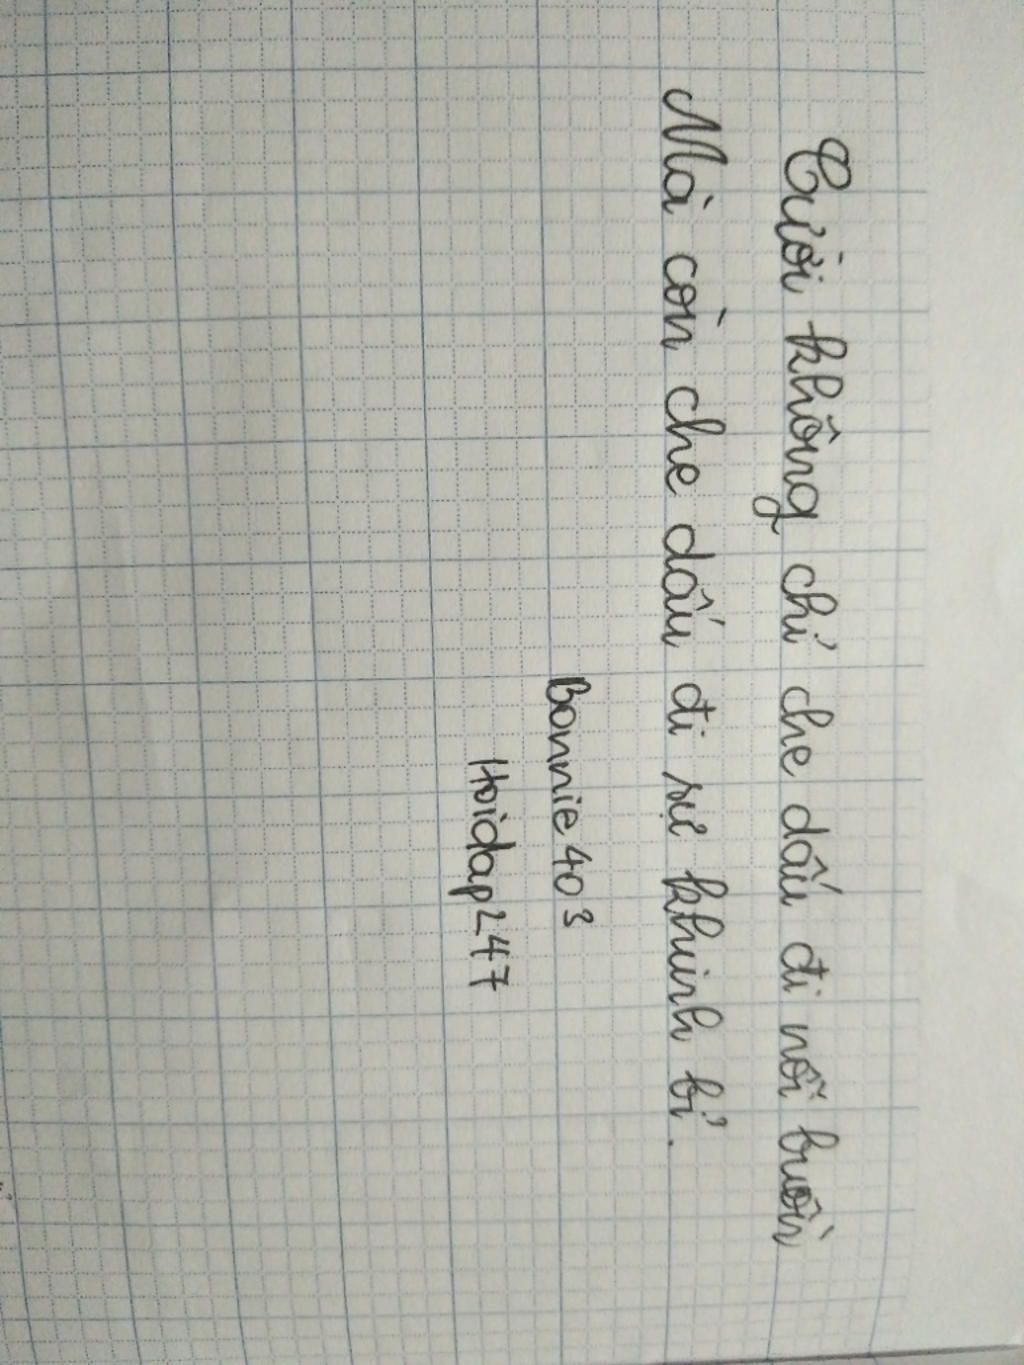 Cười không chỉ che dấu đi nỗi buồn
Mà còn che dấu đi sự khinh bỉ.
Bonnie403
Hoidap247